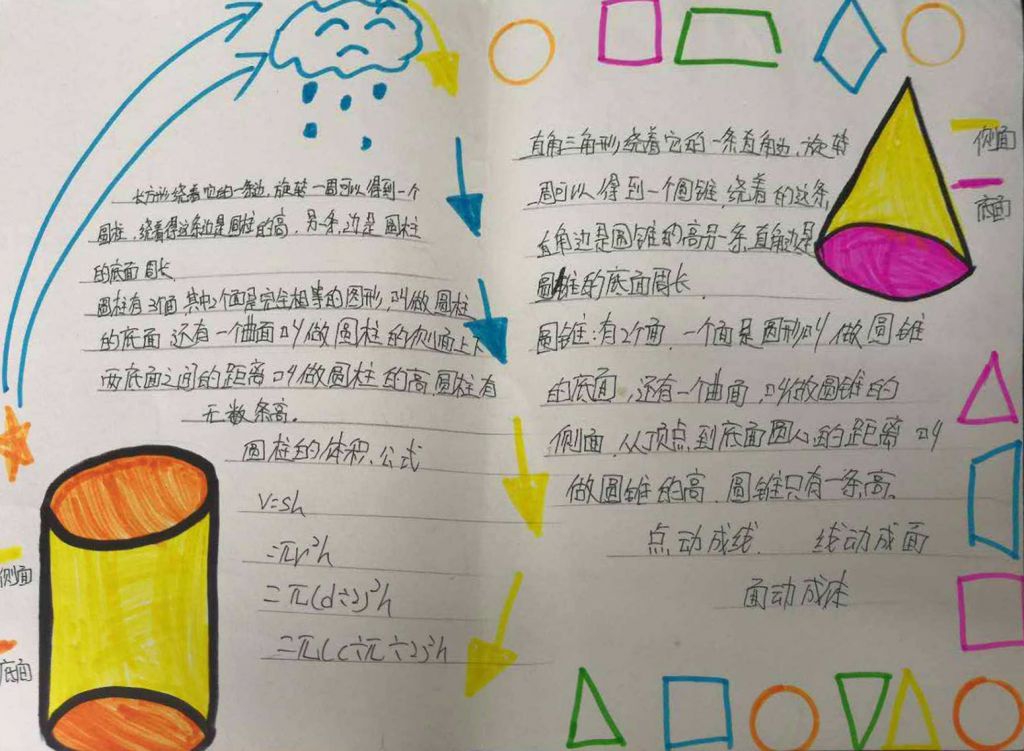 长方形绕着它的一条边,旋转一周可以得到一个
圆柱,绕着得这条边是圆柱的高,另一条边是圆柱
的底面周长
圆柱有3个面其中2个面是完全相等的图形,叫做圆柱
的底面 还有一个曲面叫做圆柱的侧面上下
两底面之间的距离叫做圆柱的高.圆柱有
无数条高.
圆柱的体积、公式
V=sh
=πr²h
=π(d÷2)²h
=π(c÷π÷2)²h
侧面
底面
直角三角形,绕着它的一条直角边,旋转
一周可以得到一个圆锥,绕着的这条,
直角边是圆锥的高另一条,直角边是
圆锥的底面周长.
圆锥:有2个面,一个面是圆形叫做圆锥
的底面,还有一个曲面,叫做圆锥的
侧面,从顶点,到底面圆心的距离叫
做圆锥的高,圆锥只有一条高.
点动成线. 线动成面
面动成体
侧面
底面